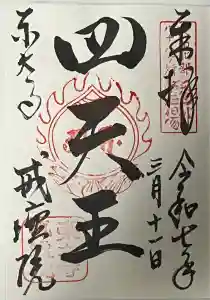 奉拝
令和七年
三月十一日
四天王
東大寺
戒壇院